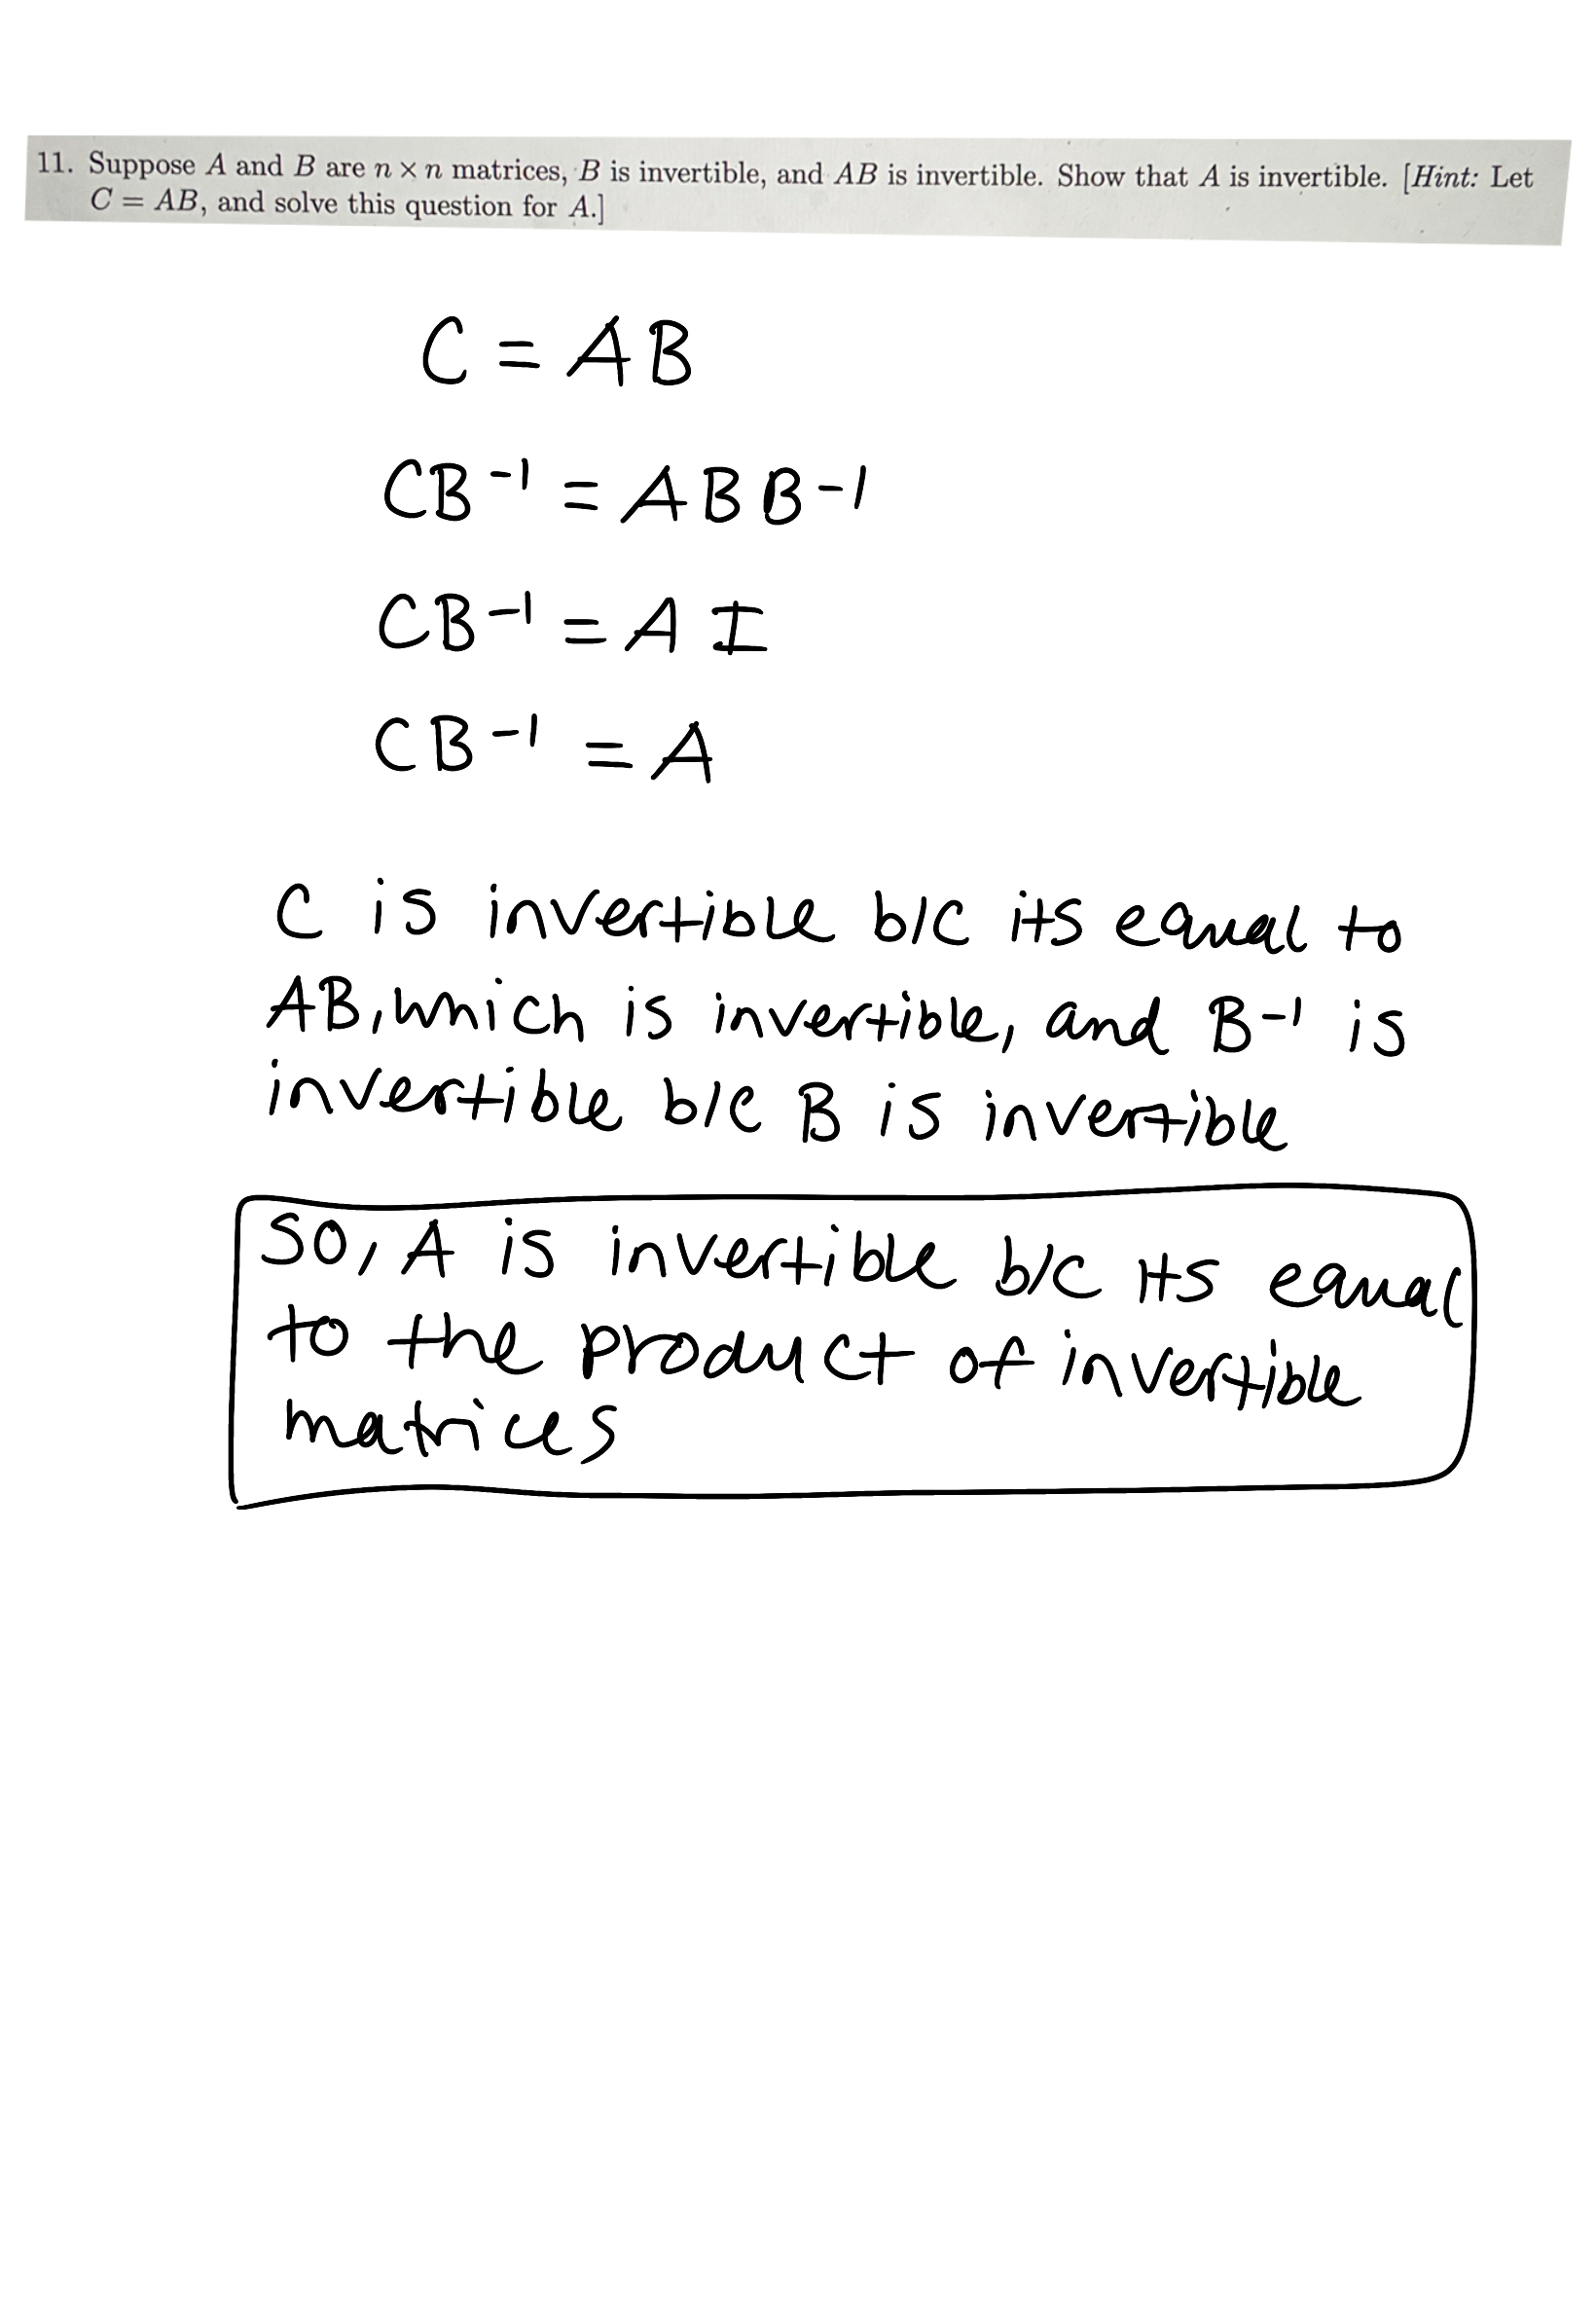 11. Suppose A and B are n × n matrices, B is invertible, and AB is invertible. Show that A is invertible. [Hint: Let
C = AB, and solve this question for A.]
C = AB
CB⁻¹ = ABB⁻¹
CB⁻¹ = A I
CB⁻¹ = A
C is invertible b/c its equal to
AB, which is invertible, and B⁻¹ is
invertible b/c B is invertible
So, A is invertible b/c its equal
to the product of invertible
matrices